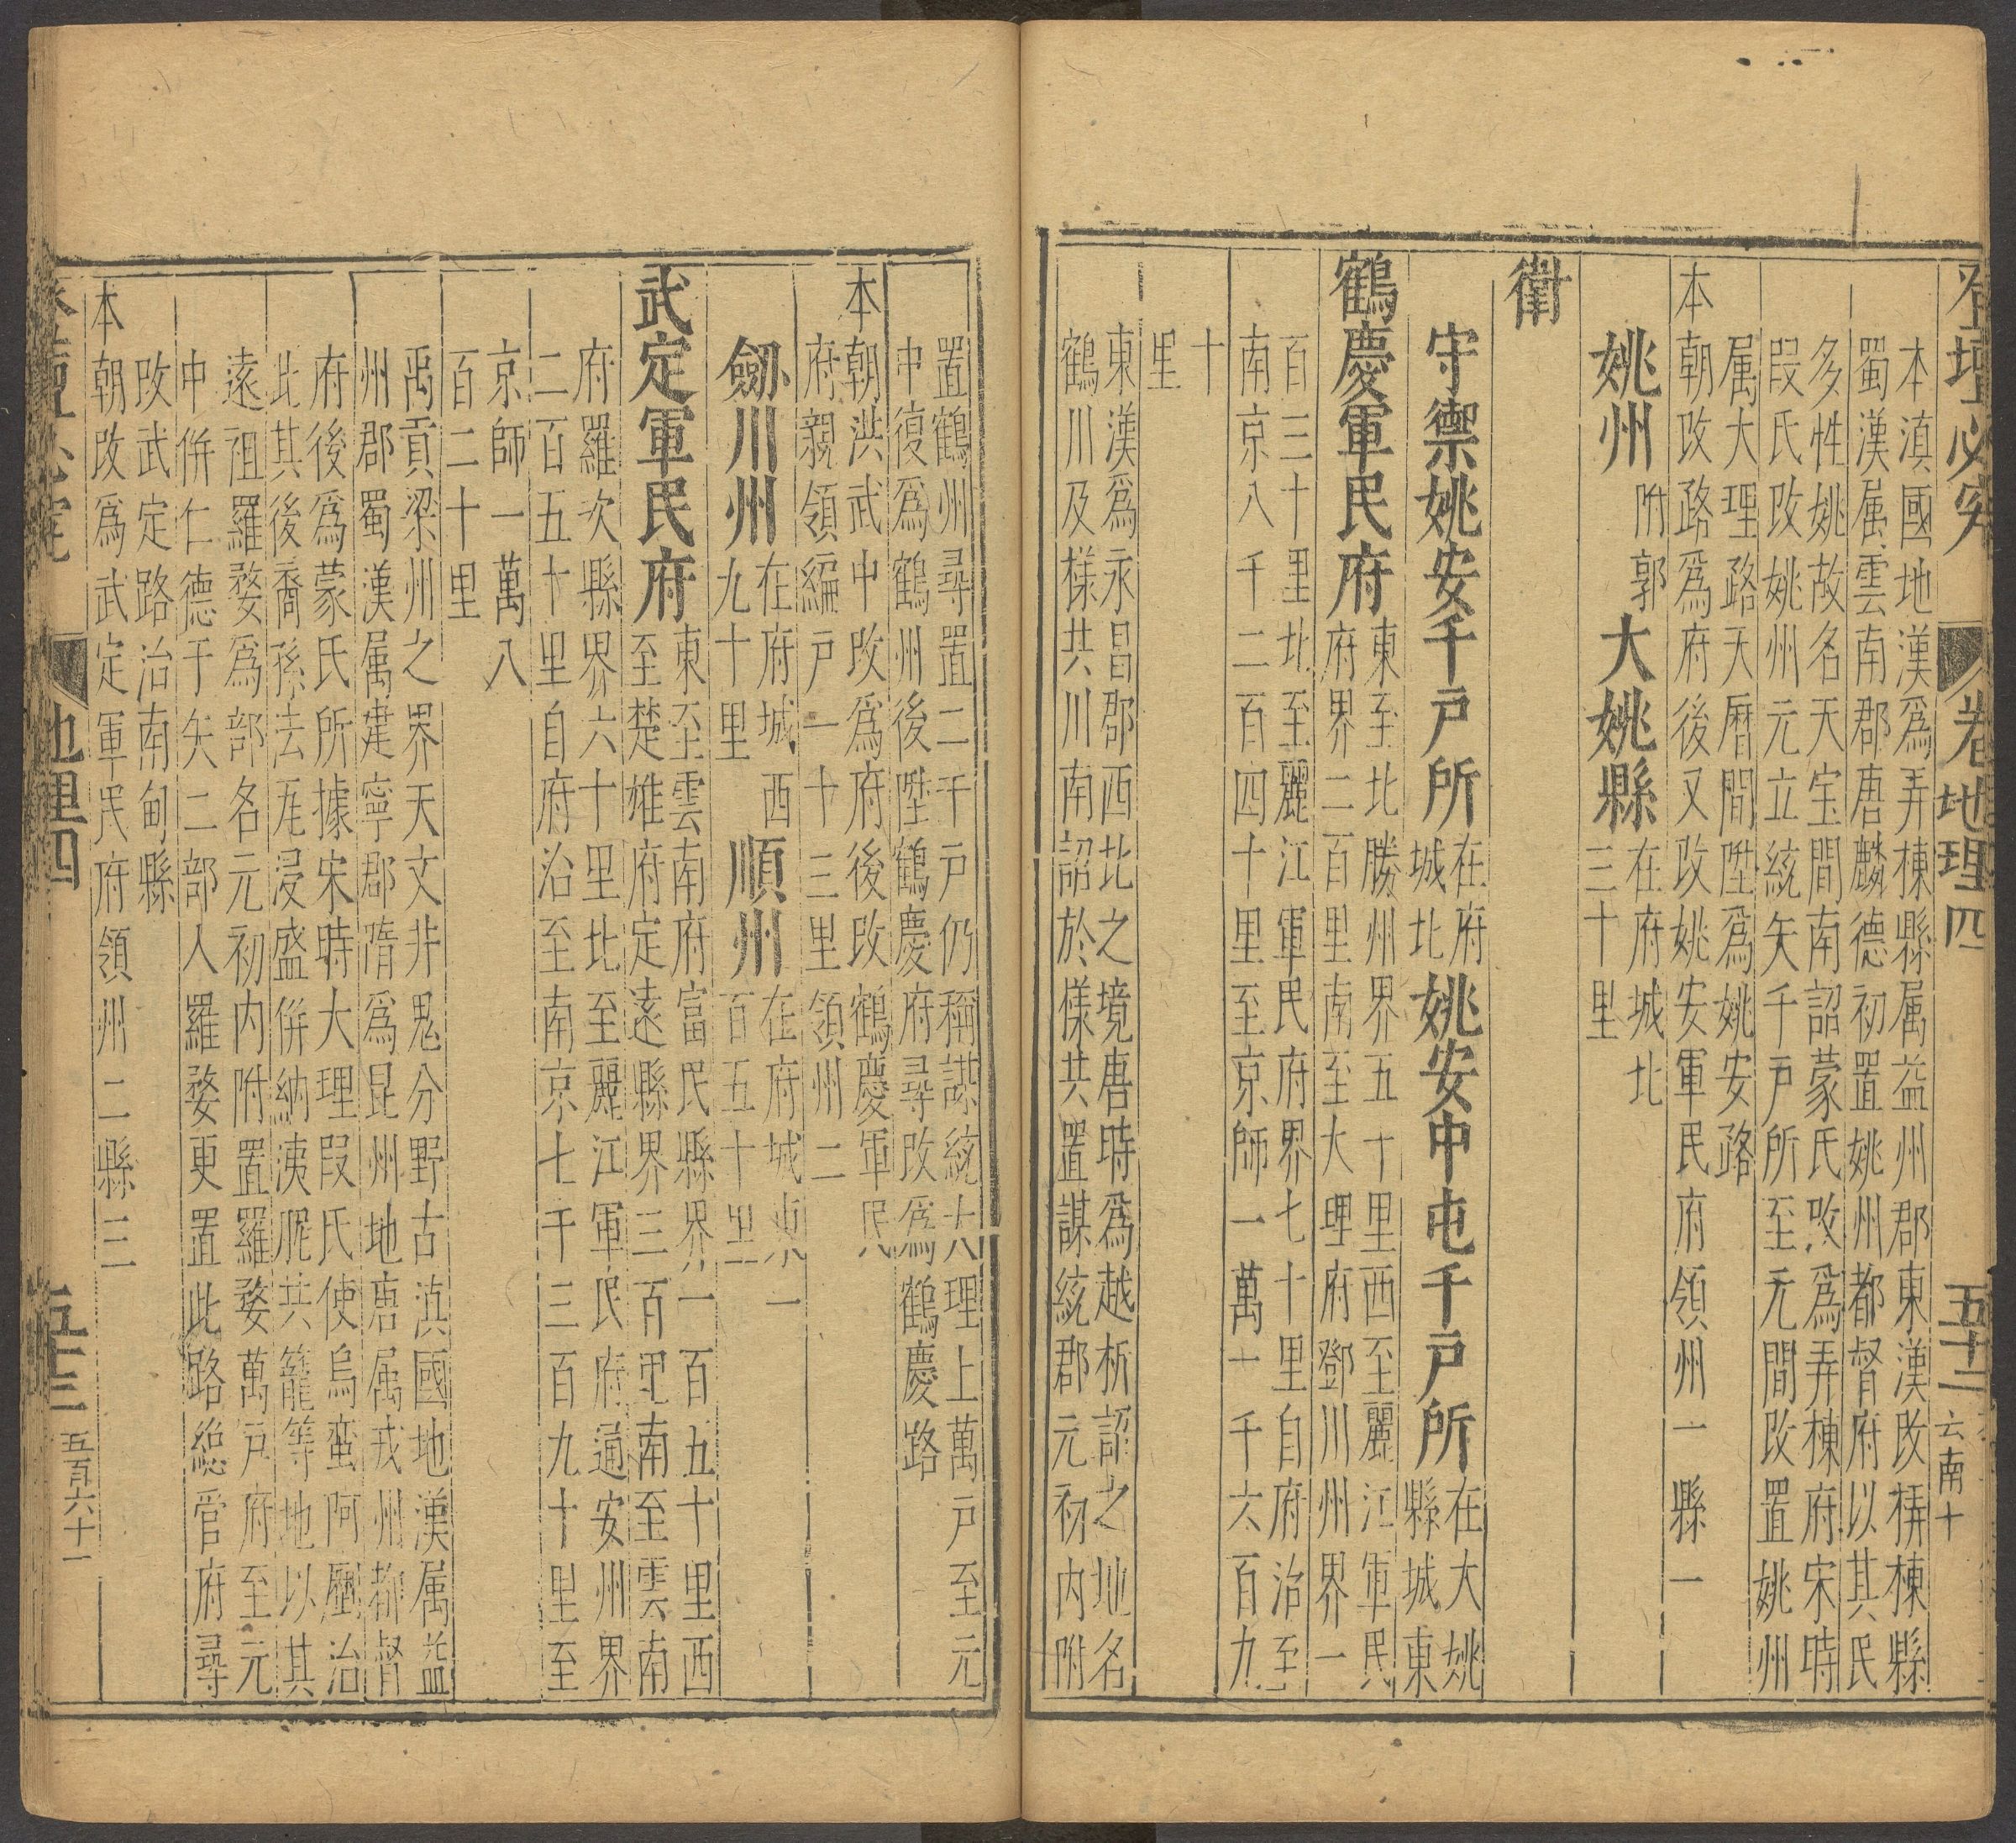 登壇必究
卷
地理四
五十二
云南十
本滇國地漢爲弄棟縣属益州郡東漢改梇棟縣
蜀漢属雲南郡唐麟德初置姚州都督府以其民
多性姚故名天宝間南詔蒙氏改爲弄棟府宋時
段氏改姚州元立統矢千戸所至元間改置姚州
属大理路天曆間陞爲姚安路
本朝改路爲府後又改姚安軍民府領州一縣一
姚州
附郭
大姚縣
在府城北
三十里
衛
守禦姚安千戸所
在府
城北
姚安中屯千戸所
在大姚
縣城東
鶴慶軍民府
東至北勝州界五十里西至麗江軍民
府界二百里南至大理府鄧川州界一
百三十里北至麗江軍民府界七十里自府治至
南京八千二百四十里至京師一萬一千六百九
十
里
東漢爲永昌郡西北之境唐時爲越析詔之地名
鶴川及様共川南詔於様共置謀統郡元初内附
置鶴州尋置二千戸仍稱謀統大理上萬戸至元
中復爲鶴州後陞鶴慶府尋改爲鶴慶路
本朝洪武中改爲府後改鶴慶軍民
府親領編戸一十三里領州二
劒川州
在府城西
九十里
順州
在府城東一
百五十里
武定軍民府
東至雲南府富民縣界一百五十里西
至楚雄府定遠縣界三百里南至雲南
府羅次縣界六十里北至麗江軍民府通安州界
二百五十里自府治至南京七千三百九十里至
京師一萬八
百二十里
禹貢梁州之界天文井鬼分野古滇國地漢属益
州郡蜀漢属建寧郡隋爲昆州地唐属戎州都督
府後爲蒙氏所據宋時大理段氏使烏蛮阿𠪨治
此其後裔孫法瓦浸盛併納洟胒共籠等地以其
遠祖羅婺爲部名元初内附置羅婺萬戸府至元
中併仁德于矢二部人羅婺更置此路緫管府尋
改武定路治南甸縣
本朝改爲武定軍民府領州二縣三
地理四
五十三
五百六十一